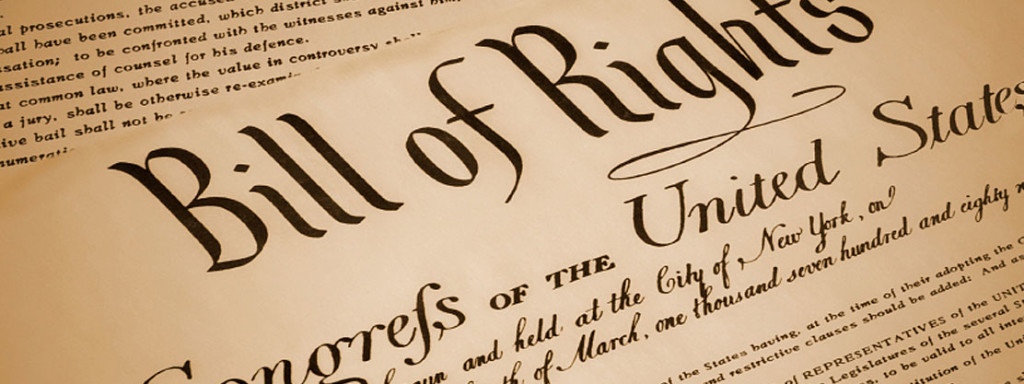 al prosecutions, the accused
hall have been committed, which district
sation; to be confronted with the witnesses against him
assistance of counsel for his defence.
at common law, where the value in controversy shall
a jury, shall be otherwise re-exami
ive bail shall not be
numerati
Bill of Rights
Congreſs OF THE United States
and held at the City of New York, on
of March, one thousand seven hundred and eighty
of the States having, at the time of their adopting the
and restrictive clauses should be added: And as
of REPRESENTATIVES of the UNIT
Legislatures of the several S
to be valid to all inte
of the Uni